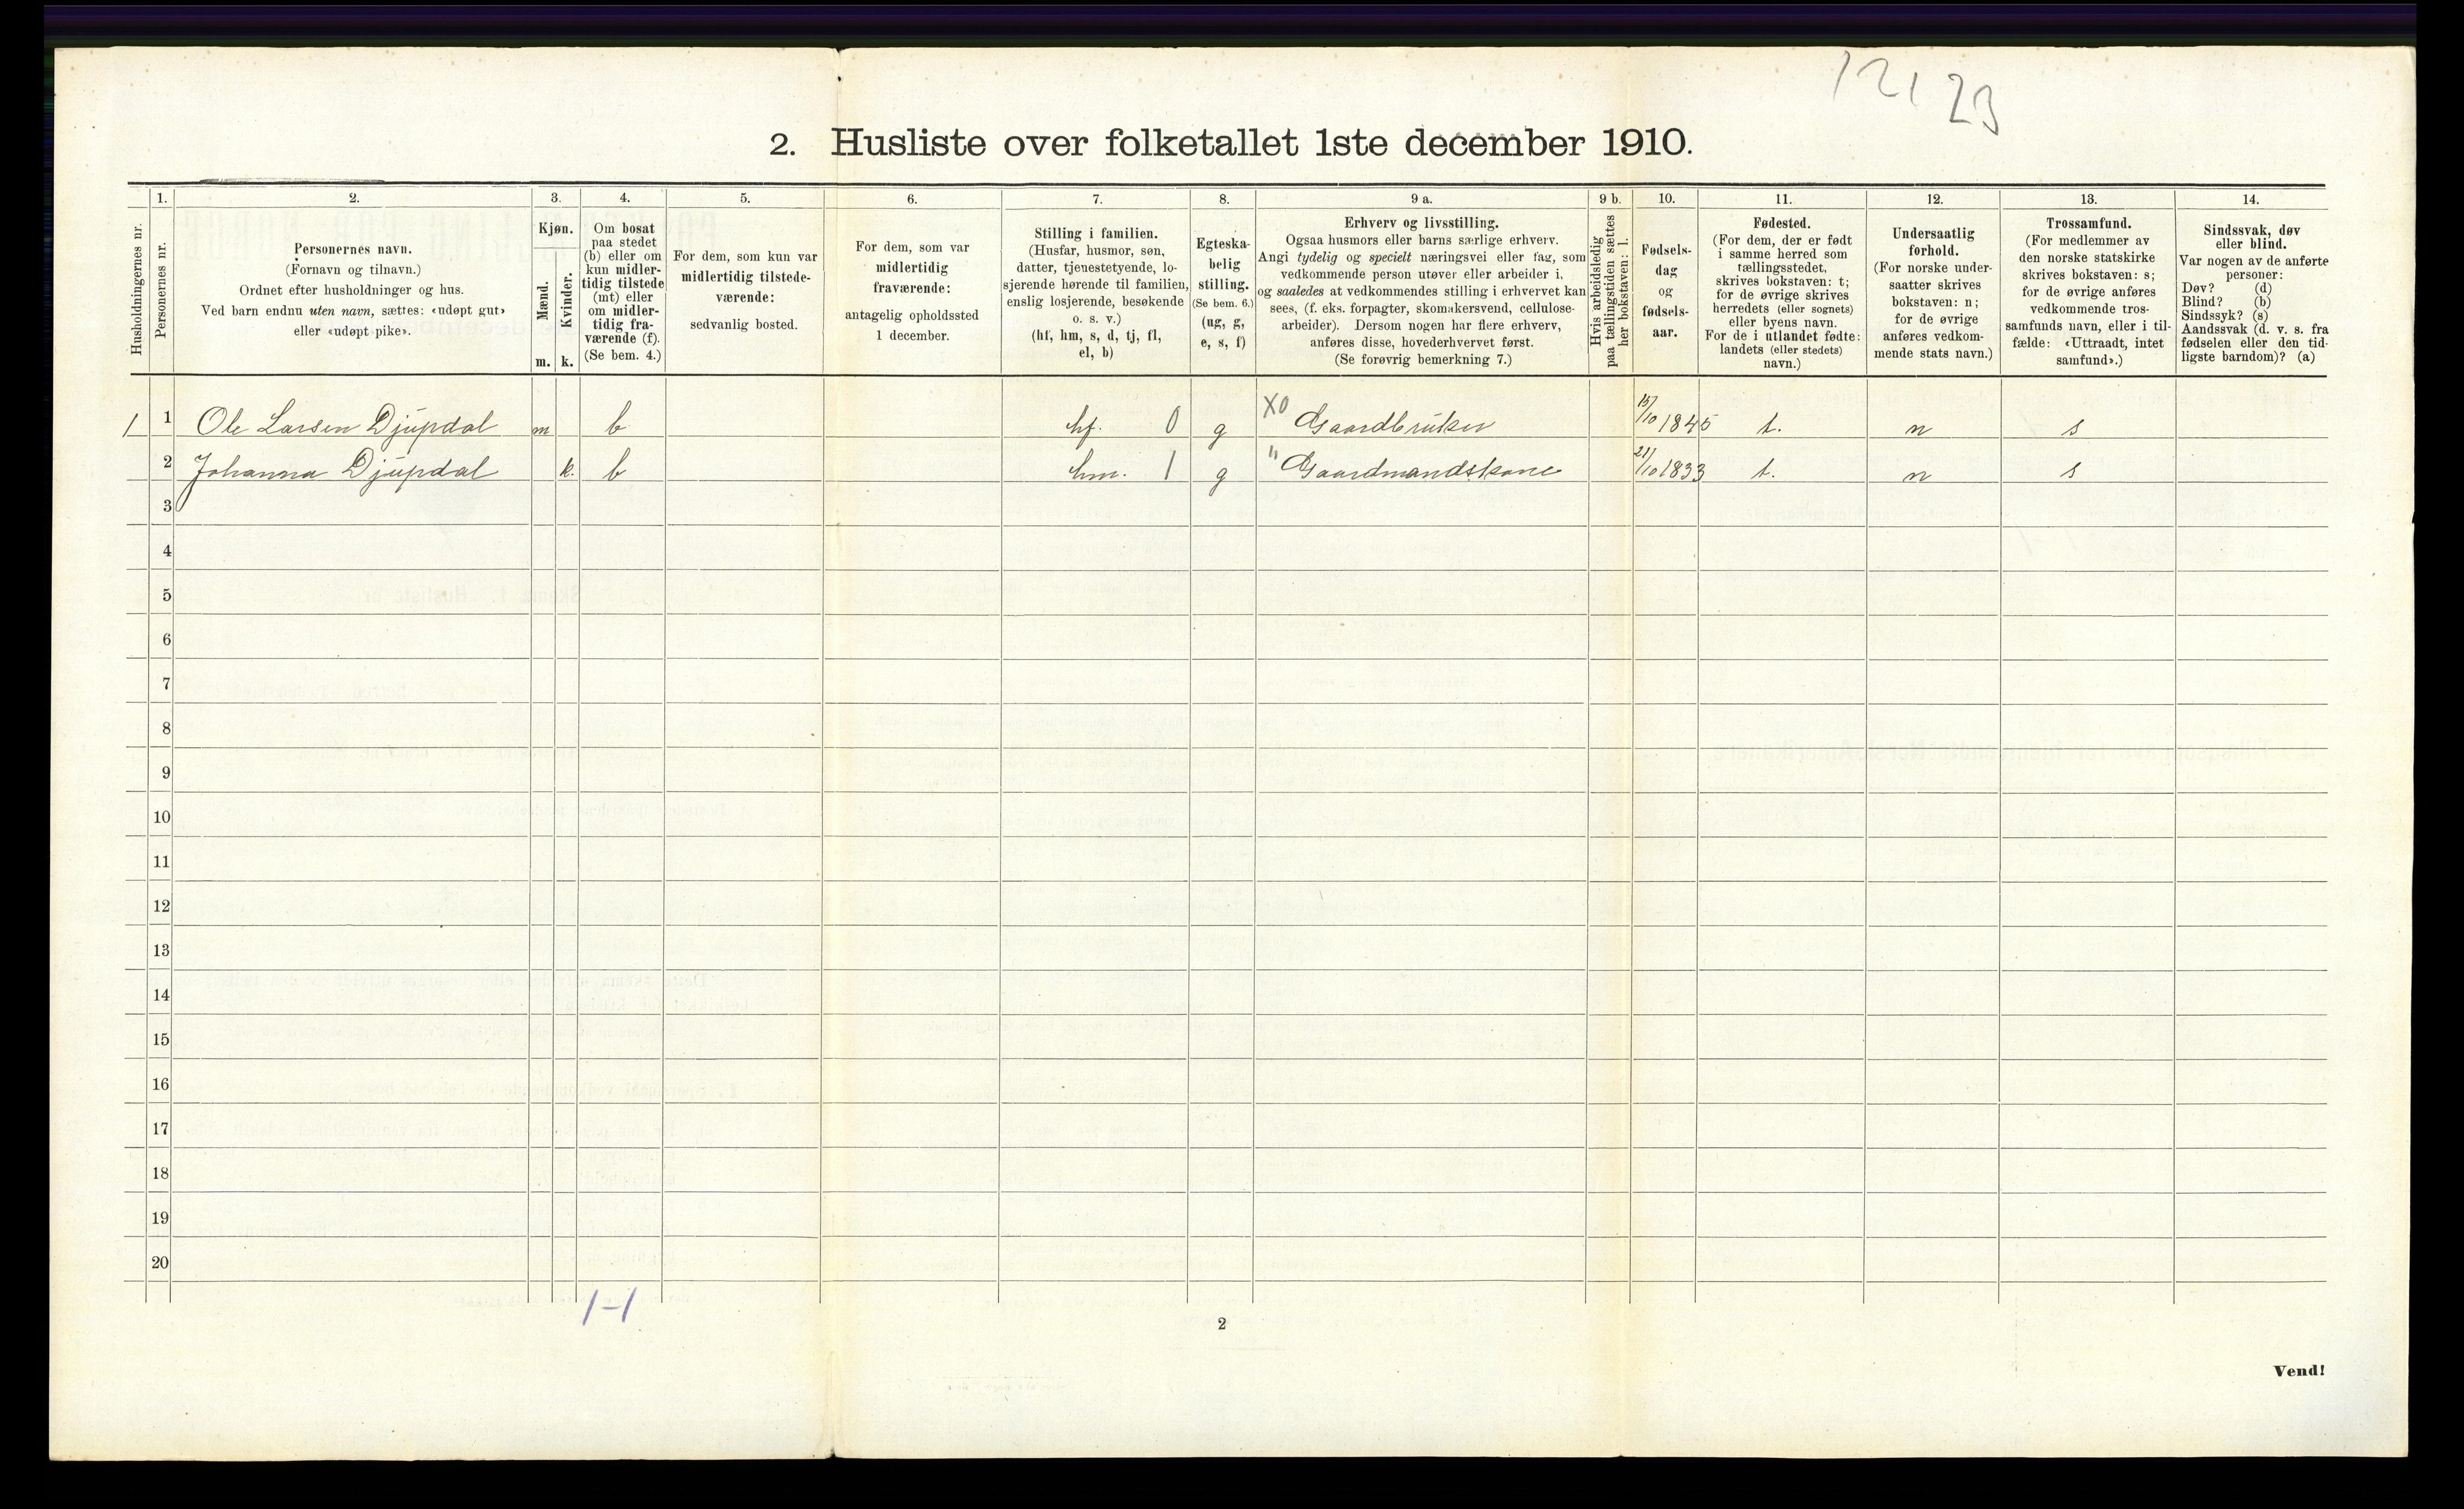 12123
2. Husliste over folketallet 1ste december 1910.
Husholdningernes nr.
1.
Personernes nr.
2.
Personernes navn.
(Fornavn og tilnavn.)
Ordnet efter husholdninger og hus.
Ved barn endnu uten navn, sættes: «udøpt gut»
eller «udøpt pike».
3.
Kjøn.
Mænd.
Kvinder.
m. k.
4.
Om bosat
paa stedet
(b) eller om
kun midler-
tidig tilstede
(mt) eller
om midler-
tidig fra-
værende (f).
(Se bem. 4.)
5.
For dem, som kun var
midlertidig tilstede-
værende:
sedvanlig bosted.
6.
For dem, som var
midlertidig
fraværende:
antagelig opholdssted
1 december.
7.
Stilling i familien.
(Husfar, husmor, søn,
datter, tjenestetyende, lo-
sjerende hørende til familien,
enslig losjerende, besøkende
o. s. v.)
(hf, hm, s, d, tj, fl,
el, b)
8.
Egteska-
belig
stilling.
(Se bem. 6.)
(ug, g,
e, s, f)
9 a.
Erhverv og livsstilling.
Ogsaa husmors eller barns særlige erhverv.
Angi tydelig og specielt næringsvei eller fag, som
vedkommende person utøver eller arbeider i,
og saaledes at vedkommendes stilling i erhvervet kan
sees, (f. eks. forpagter, skomakersvend, cellulose-
arbeider). Dersom nogen har flere erhverv,
anføres disse, hovederhvervet først.
(Se forøvrig bemerkning 7.)
9 b.
Hvis arbeidsledig
paa tællingstiden sættes
her bokstaven: l.
10.
Fødsels-
dag
og
fødsels-
aar.
11.
Fødested.
(For dem, der er født
i samme herred som
tællingsstedet,
skrives bokstaven: t;
for de øvrige skrives
herredets (eller sognets)
eller byens navn.
For de i utlandet fødte:
landets (eller stedets)
navn.)
12.
Undersaatlig
forhold.
(For norske under-
saatter skrives
bokstaven: n;
for de øvrige
anføres vedkom-
mende stats navn.)
13.
Trossamfund.
(For medlemmer av
den norske statskirke
skrives bokstaven: s;
for de øvrige anføres
vedkommende tros-
samfunds navn, eller i til-
fælde: «Uttraadt, intet
samfund».)
14.
Sindssvak, døv
eller blind.
Var nogen av de anførte
personer:
Døv? (d)
Blind? (b)
Sindssyk? (s)
Aandssvak (d. v. s. fra
fødselen eller den tid-
ligste barndom)? (a)
1 1 Ole Larsen Djupdal m b hf. 0 g X0 Gaardbruker 15/10 1845 t. n s
2 Johanna Djupdal k. b hm. 1 g " Gaardmandskone 21/10 1833 t. n s
3
4
5
6
7
8
9
10
11
12
13
14
15
16
17
18
19
20
1-1
2
Vend!